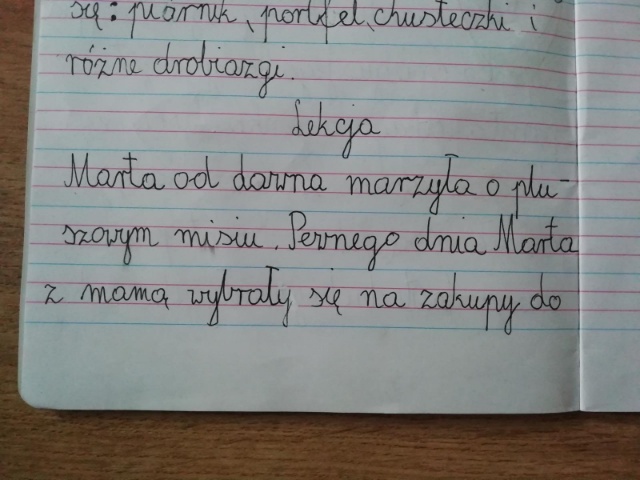 się: piórnik, portfel, chusteczki i
różne drobiazgi.
Lekcja
Marta od dawna marzyła o plu-
szowym misiu. Pewnego dnia Marta
z mamą wybrały się na zakupy do